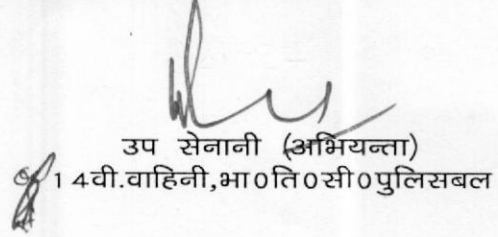 उप सेनानी (अभियन्ता)
14वी.वाहिनी,भा0ति0सी0पुलिसबल